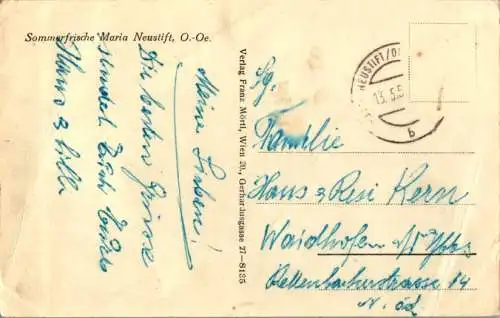 Sommerfrische Maria Neustift, O.-Oe.
Meine Lieben!
Die besten Grüsse
sendet Euch
Hans &
Verlag Franz Mörtl, Wien 20., Gerhardusgasse 27—8135
NEUSTIFT/
13.5.5
b
Fg.
Familie
Hans & Resi Kern
Waidhofen a/d Ybbs
Plenkerstrasse 14
N. Öd